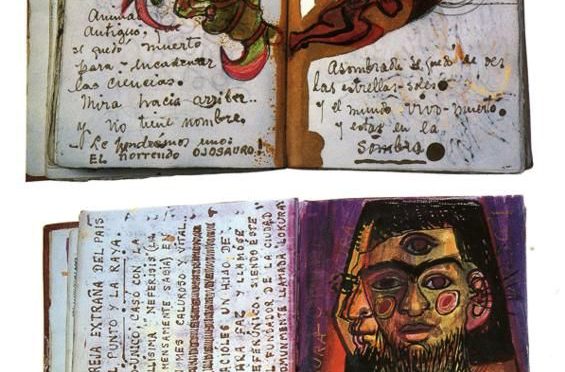 Animal
Antiguo, y
se quedó muerto
para encadenar
las ciencias.
Mira hacia arriba..
y no tiene nombre.
Le pondremos uno:
EL horrendo OJOSAURO!
Asombrado se quedó de ver
las estrellas-soles
y el mundo vivo-muerto
y estar en la
sombra
PAREJA EXTRAÑA DEL PAIS
PUNTO Y LA RAYA.
UNICO, CASO CON LA
LLISIMA NEFERISIS (LA
MENSAMENTE SAGIA) EN
MES CALUROSO Y VITAL.
NACIÓLES UN HIJO DE
RARA FAZ Y LLAMOSE
NEFERÚNICO. SIENDO ESTE
EL FUNDADOR DE LA CIUDAD
COMUNMENTE LLAMADA LOKURA